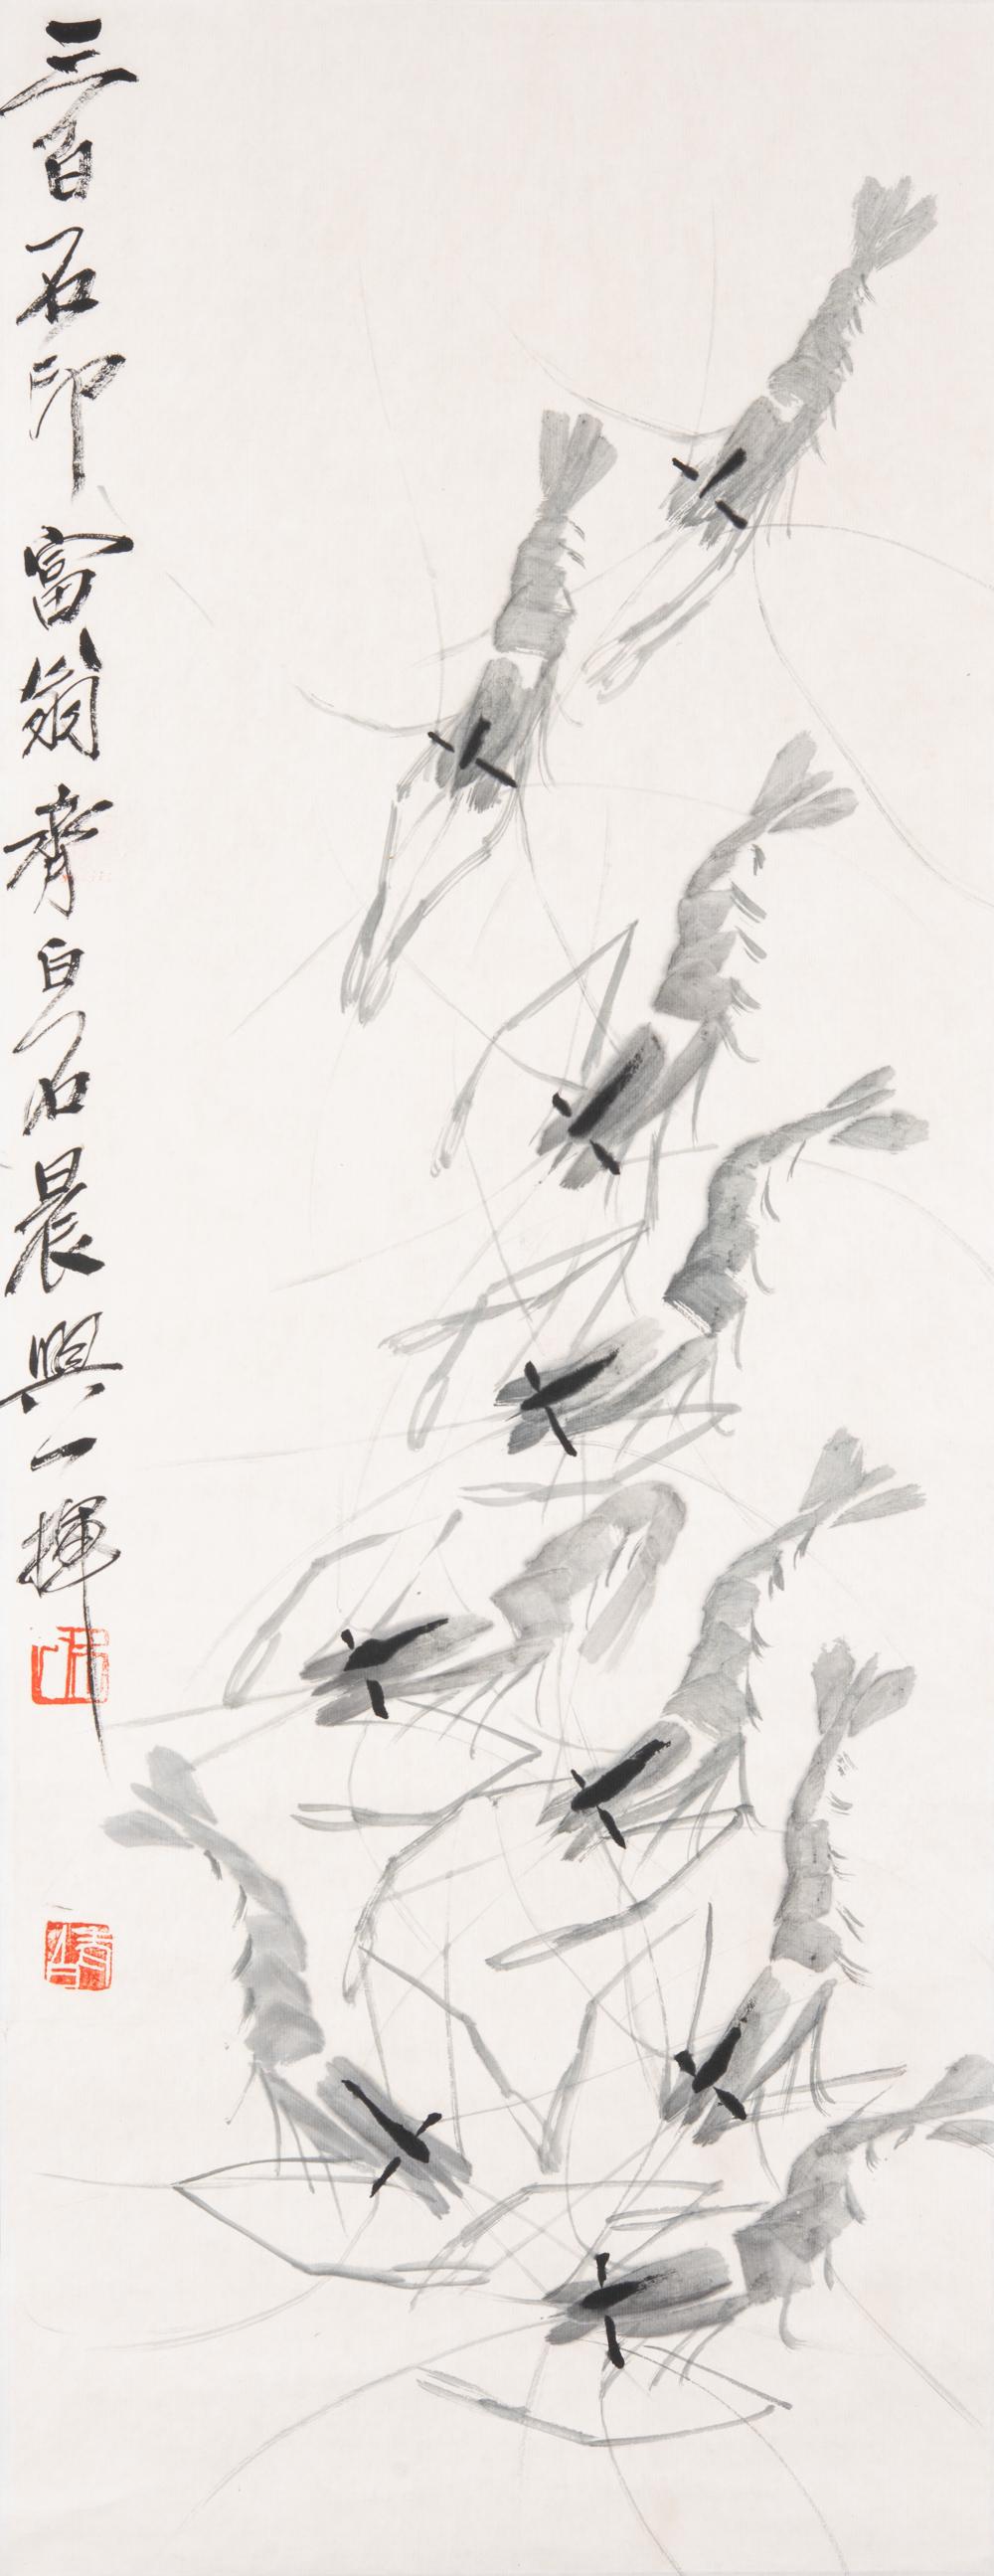 三百石印富翁齊白石晨興一揮